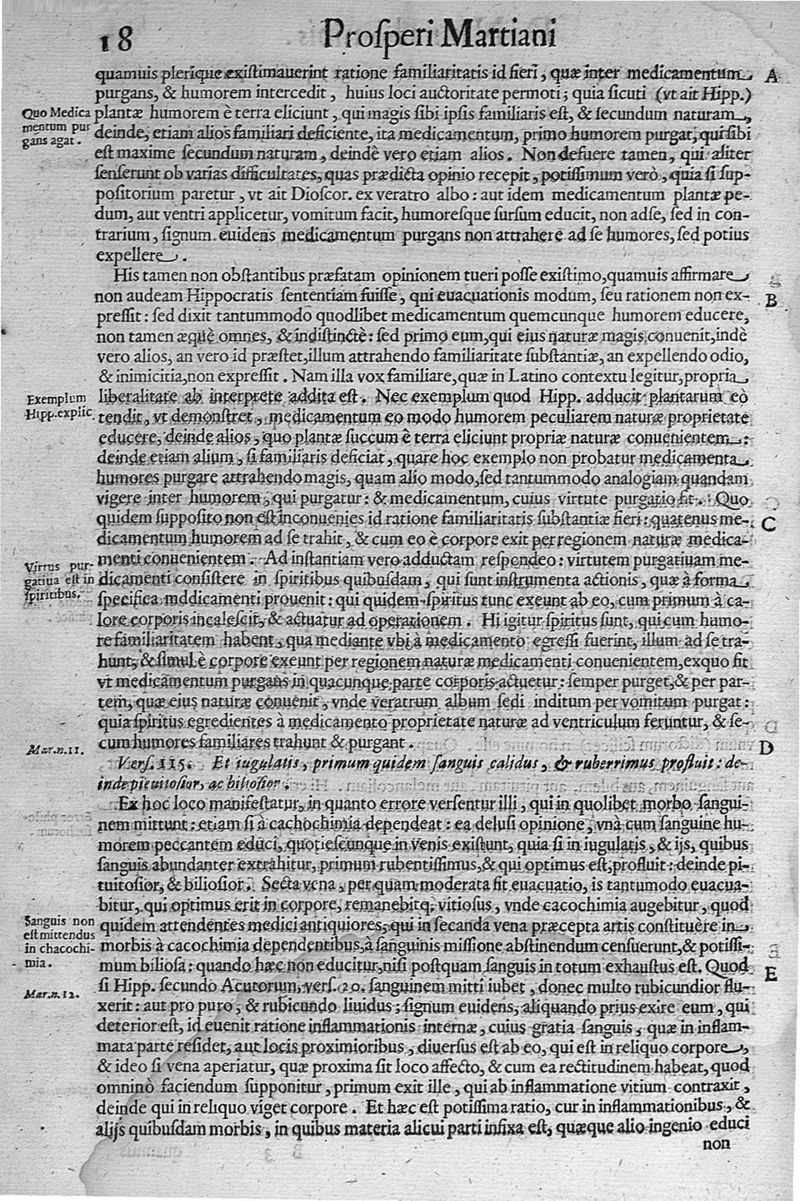 18 Proſperi Martiani
quamuis plerique exiſtimauerint ratione familiaritatis id fieri, quæ inter medicamentum A
purgans, & humorem intercedit, huius loci auctoritate permoti; quia ſicuti (vt ait Hipp.)
Quo Medica plantæ humorem è terra eliciunt, qui magis ſibi ipſis familiaris eſt, & ſecundum naturam,
mentum pur deinde, etiam alios familiari deficiente, ita medicamentum, primo humorem purgat, qui ſibi
gans agat. eſt maxime ſecundum naturam, deindè vero etiam alios. Non defuere tamen, qui aliter
ſenſerunt ob varias difficultates, quas prædicta opinio recepit, potiſſimum verò, quia ſi ſup-
poſitorium paretur, vt ait Dioſcor. ex veratro albo: aut idem medicamentum plantæ pe-
dum, aut ventri applicetur, vomitum facit, humoreſque ſurſum educit, non adſe, ſed in con-
trarium, ſignum euidens medicamentum purgans non attrahere ad ſe humores, ſed potius
expellere.
His tamen non obſtantibus præfatam opinionem tueri poſſe exiſtimo, quamuis affirmare
non audeam Hippocratis ſententiam fuiſſe, qui euacuationis modum, ſeu rationem non ex- B
preſſit: ſed dixit tantummodo quodlibet medicamentum quemcunque humorem educere,
non tamen æquè omnes, & indiſtinctè: ſed primo eum, qui eius naturæ magis conuenit, indè
vero alios, an vero id præſtet, illum attrahendo familiaritate ſubſtantiæ, an expellendo odio,
& inimicitia, non expreſſit. Nam illa vox familiare, quæ in Latino contextu legitur, propria
Exemplum liberalitate ab interprete addita eſt. Nec exemplum quod Hipp. adducit plantarum eò
Hipp. explic. tendit, vt demonſtret, medicamentum eo modo humorem peculiarem naturæ proprietate
educere, deinde alios, quo plantæ ſuccum è terra eliciunt propriæ naturæ conuenientem:
deinde etiam alium, ſi familiaris deficiat, quare hoc exemplo non probatur medicamenta
humores purgare attrahendo magis, quam alio modo, ſed tantummodo analogiam quandam
vigere inter humorem, qui purgatur: & medicamentum, cuius virtute purgatio fit. Quo
quidem ſuppoſito non eſt inconuenies id ratione familiaritatis ſubſtantiæ fieri: quatenus me- C
dicamentum humorem ad ſe trahit, & cum eo è corpore exit per regionem naturæ medica-
Virtus pur- menti conuenientem. Ad inſtantiam vero adductam reſpondeo: virtutem purgatiuam me-
gatiua eſt in dicamenti conſiſtere in ſpiritibus quibuſdam, qui ſunt inſtrumenta actionis, quæ à forma
ſpiritibus. ſpecifica mddicamenti prouenit: qui quidem ſpiritus tunc exeunt ab eo, cum primum à ca-
lore corporis incaleſcit, & actuatur ad operationem. Hi igitur ſpiritus ſunt, qui cum humo-
re familiaritatem habent, qua mediante vbi à medicamento egreſſi fuerint, illum ad ſe tra-
hunt, & ſimul è corpore exeunt per regionem naturæ medicamenti conuenientem, exquo fit
vt medicamentum purgans in quacunque parte corporis actuetur: ſemper purget, & per par-
tem, quæ eius naturæ conuenit, vnde veratrum album ſedi inditum per vomitum purgat:
quia ſpiritus egredientes à medicamento proprietate naturæ ad ventriculum feruntur, & ſe-
Mar. n. 11. cum humores familiares trahunt & purgant. D
Verſ. 115. Et iugulatis, primum quidem ſanguis calidus, & ruberrimus profluit: de-
inde pituitoſior, ac bilioſior.
Ex hoc loco manifeſtatur, in quanto errore verſentur illi, qui in quolibet morbo ſangui-
nem mittunt: etiam ſi à cachochimia dependeat: ea deluſi opinione, vnà cum ſanguine hu-
morem peccantem educi, quotieſcunque in venis exiſtunt, quia ſi in iugulatis, & ijs, quibus
ſanguis abundanter extrahitur, primum rubentiſſimus, & qui optimus eſt, profluit: deinde pi-
tuitoſior, & bilioſior. Secta vena, per quam moderata fit euacuatio, is tantumodo euacua-
bitur, qui optimus erit in corpore, remanebitq; vitioſus, vnde cacochimia augebitur, quod
Sanguis non quidem attendentes medici antiquiores, qui in ſecanda vena præcepta artis conſtituère in
eſt mittendus morbis à cacochimia dependentibus, à ſanguinis miſſione abſtinendum cenſuerunt, & potiſſi-
in chacochi- mum bilioſa: quando hæc non educitur, niſi poſtquam ſanguis in totum exhauſtus eſt. Quod
mia. ſi Hipp. ſecundo Acutorum, verſ. 20. ſanguinem mitti iubet, donec multo rubicundior flu- E
Mar. n. 12. xerit: aut pro puro, & rubicundo liuidus; ſignum euidens, aliquando prius exire eum, qui
deterior eſt, id euenit ratione inflammationis internæ, cuius gratia ſanguis, quæ in inflam-
mata parte reſidet, aut locis proximioribus, diuerſus eſt ab eo, qui eſt in reliquo corpore,
& ideo ſi vena aperiatur, quæ proxima ſit loco affecto, & cum ea rectitudinem habeat, quod
omninò faciendum ſupponitur, primum exit ille, qui ab inflammatione vitium contraxit,
deinde qui in reliquo viget corpore. Et hæc eſt potiſſima ratio, cur in inflammationibus, &
alijs quibuſdam morbis, in quibus materia alicui parti infixa eſt, quæque alio ingenio educi
non